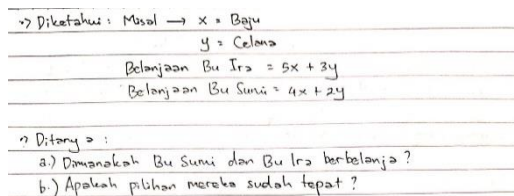 -> Diketahui : Misal → x = Baju
y = Celana
Belanjaan Bu Ira = 5x + 3y
Belanjaan Bu Sumi = 4x + 2y
Ditanya :
a.) Dimanakah Bu Sumi dan Bu Ira berbelanja ?
b.) Apakah pilihan mereka sudah tepat ?